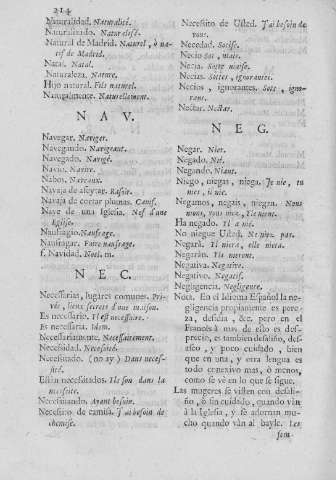 214
Naturalidad. Naturalité.
Naturalizado. Naturalisé.
Natural de Madrid. Naturel, ò natif de Madrid.
Natal. Natal.
Naturaleza. Nature.
Hijo natural. Fils naturel.
Naturalmente. Naturellement.
NAV.
Navegar. Naviger.
Navegando. Navigeant.
Navegado. Navigé.
Navio. Navire.
Nabos. Naveaux.
Navaja de afeytar. Rasoir.
Navaja de cortar plumas. Canif.
Nave de una Iglesia. Nef d'une
Eglise.
Naufragio. Naufrage.
Naufragar. Faire naufrage.
f. Navidad. Noel. m.
NEC.
Necessarias, lugares comunes. Privés, lieux secrets d'une maison.
Es necessario. Il est necessaire.
Es necessaria. Idem.
Necessariamente. Necessairement.
Necessidad. Necessité.
Necessitado. (no ay) Dans necessité.
Están necessitados. Ils son dans la
necessité.
Necessitando. Ayant besoin.
Necessito de camisa. J'ai besoin de
chemise.
Necessito de Usted. J'ai besoin de
vous.
Necedad. Sotise.
Necio. Sot, niais.
Necia. Sotte, niaise.
Necias. Sottes, ignorantes.
Necios, ignorantes. Sots, ignorans.
Nectar. Nectar.
NEG.
Negar. Nier.
Negado. Nié.
Negando. Niant.
Niego, niegas, niega. Je nie, tu
nies, il nie.
Negamos, negais, niegan. Nous
nions, vous niez, ils nient.
Ha negado. Il a nié.
No niegue Usted. Ne niez pas.
Negará. Il niera, elle niera.
Negarán. Ils nieront.
Negativa. Negative.
Negativo. Negatif.
Negligencia. Negligence.
Nota. En el Idioma Español la negligencia propiamente es pereza, desidia, &c. pero en el
Francès à mas de esto es desprecio, es tambien desaliño, desaseo, y poco cuidado, bien
que en una, y otra lengua es
todo conexivo mas, ò menos,
como se vé en lo que se sigue.
Las mugeres se visten con desaliño, ò sin cuidado, quando ván
à la Iglesia, y se adornan mucho quando ván al bayle. Les
fem-